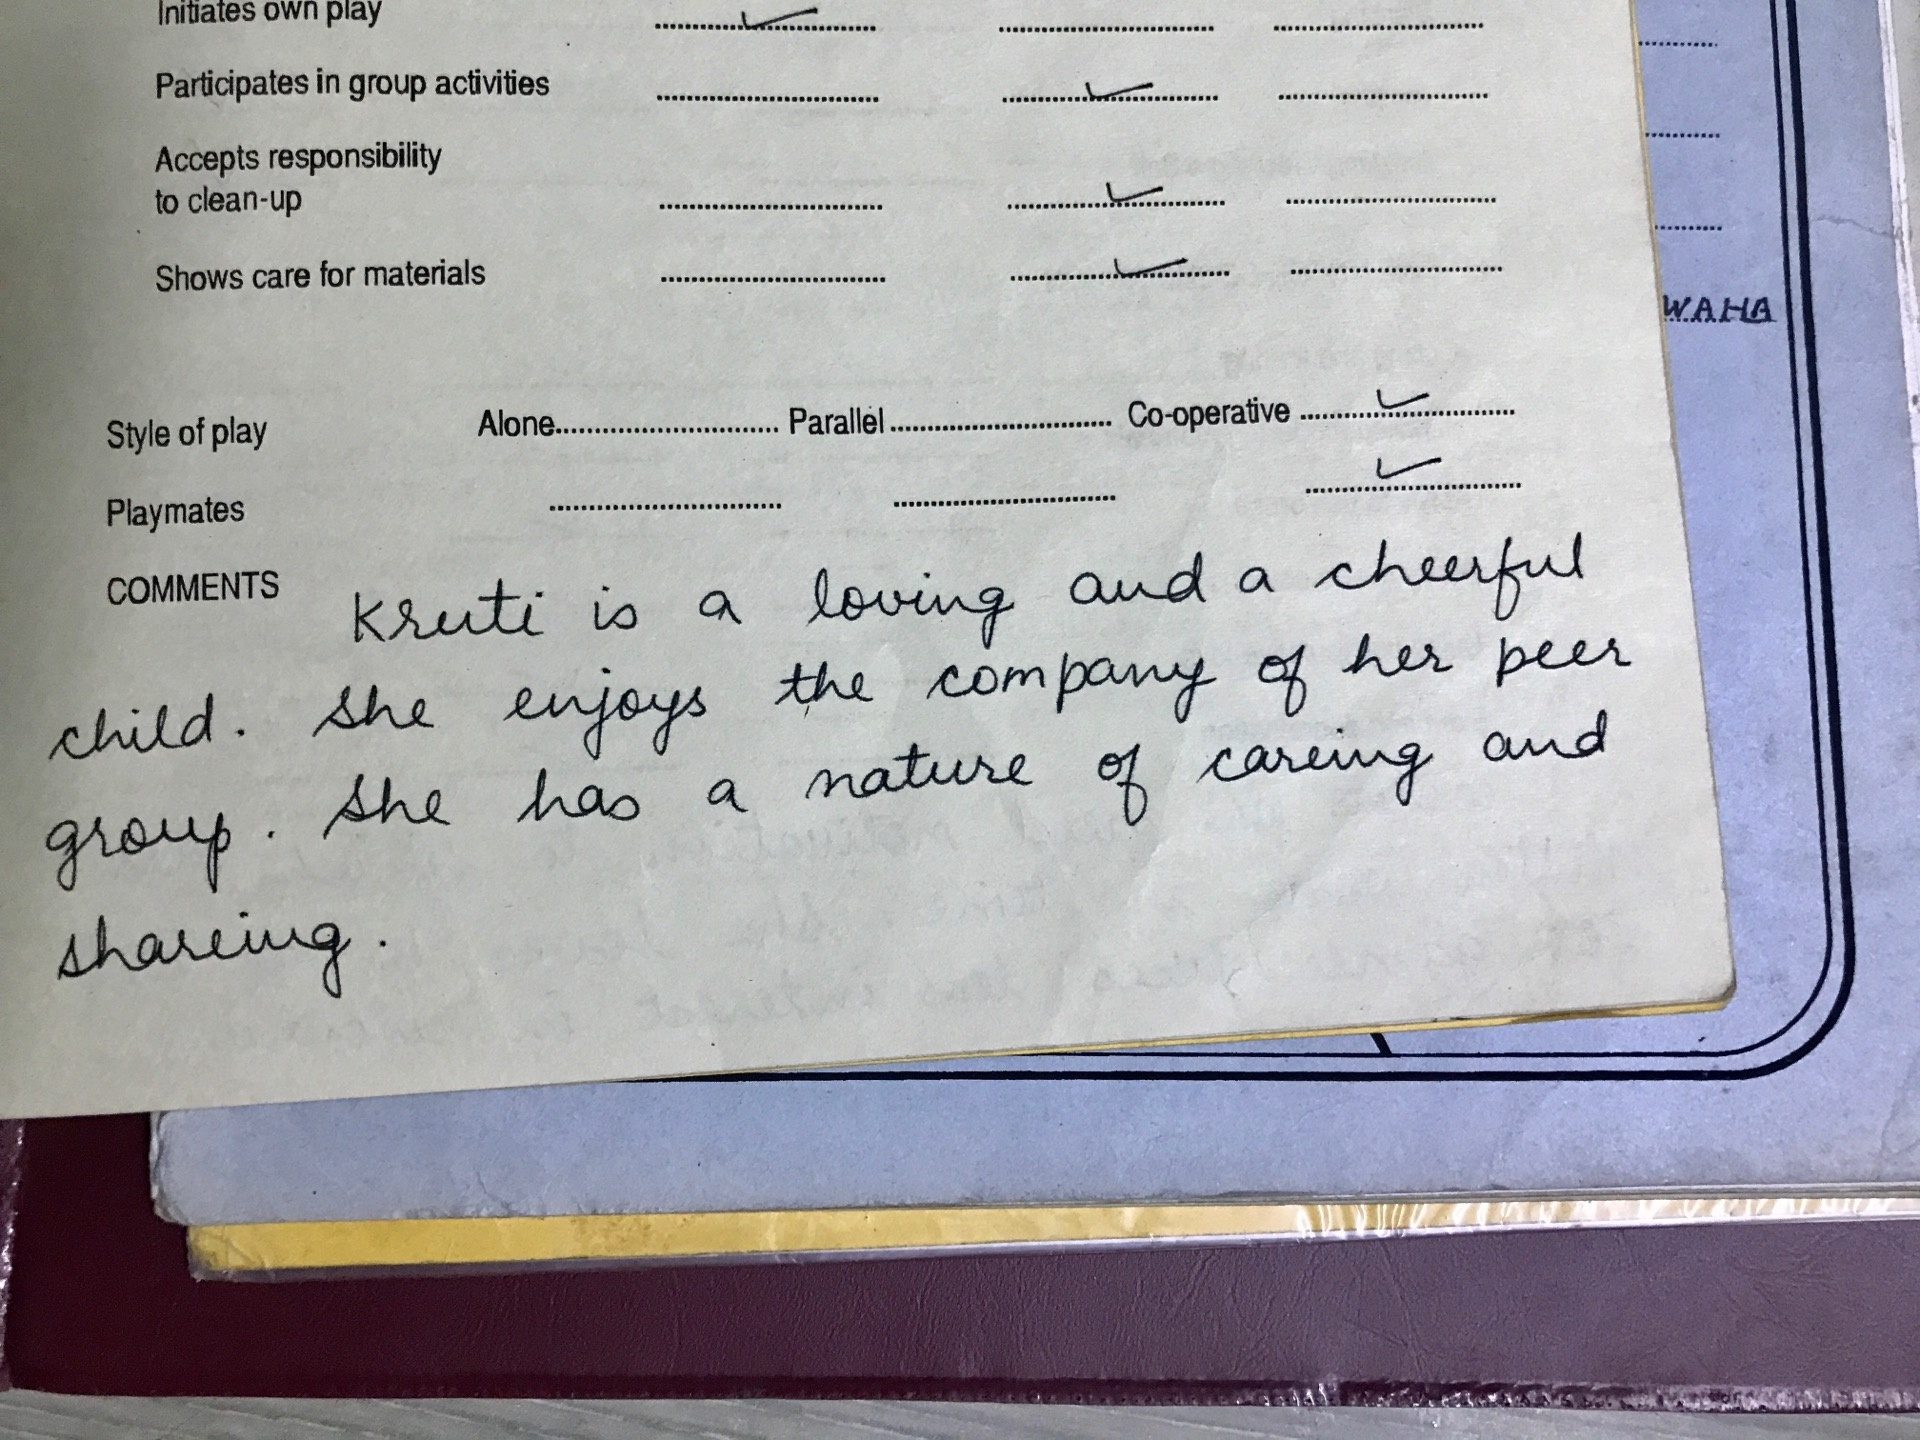 Initiates own play
Participates in group activities
Accepts responsibility
to clean-up
Shows care for materials
WAHA
Style of play Alone............................ Parallel............................ Co-operative............................
Playmates
COMMENTS Kruti is a loving and a cheerful
child. She enjoys the company of her peer
group. She has a nature of careing and
shareing.